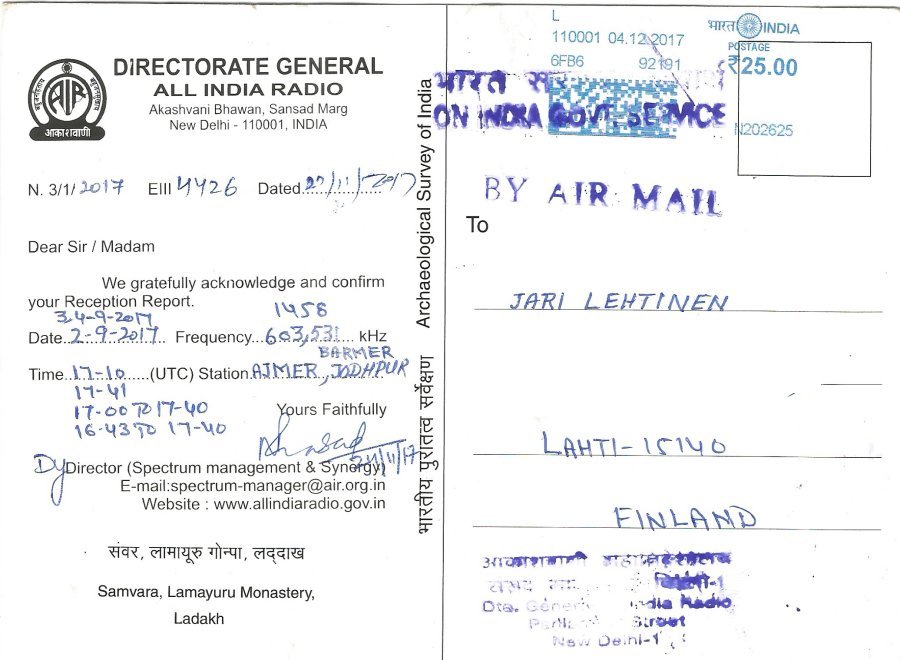 DIRECTORATE GENERAL
ALL INDIA RADIO
Akashvani Bhawan, Sansad Marg
New Delhi - 110001, INDIA
AIR
आकाशवाणी
N. 3/1/2017 EIII 4426 Dated 27/11/2017
Dear Sir / Madam
We gratefully acknowledge and confirm
your Reception Report.
3,4-9-2017 1458
Date 2-9-2017 Frequency 603,531 kHz
BARMER
Time 17-10 (UTC) Station AJMER, JODHPUR
17-41
17-00 TO 17-40
16-43 TO 17-40
Yours Faithfully
27/11/17
Dy Director (Spectrum management & Synergy)
E-mail:spectrum-manager@air.org.in
Website : www.allindiaradio.gov.in
संवर, लामायूरु गोन्पा, लद्दाख
Samvara, Lamayuru Monastery,
Ladakh
भारतीय पुरातत्व सर्वेक्षण Archaeological Survey of India
L
110001 04.12.2017
6FB6 92191
भारत INDIA
POSTAGE
₹25.00
N202625
भारत
ON INDIA GOVT. SERVICE
BY AIR MAIL
To
JARI LEHTINEN
LAHTI-15140
FINLAND
आकाशवाणी
Dte. General India Radio
Street
New Delhi-1